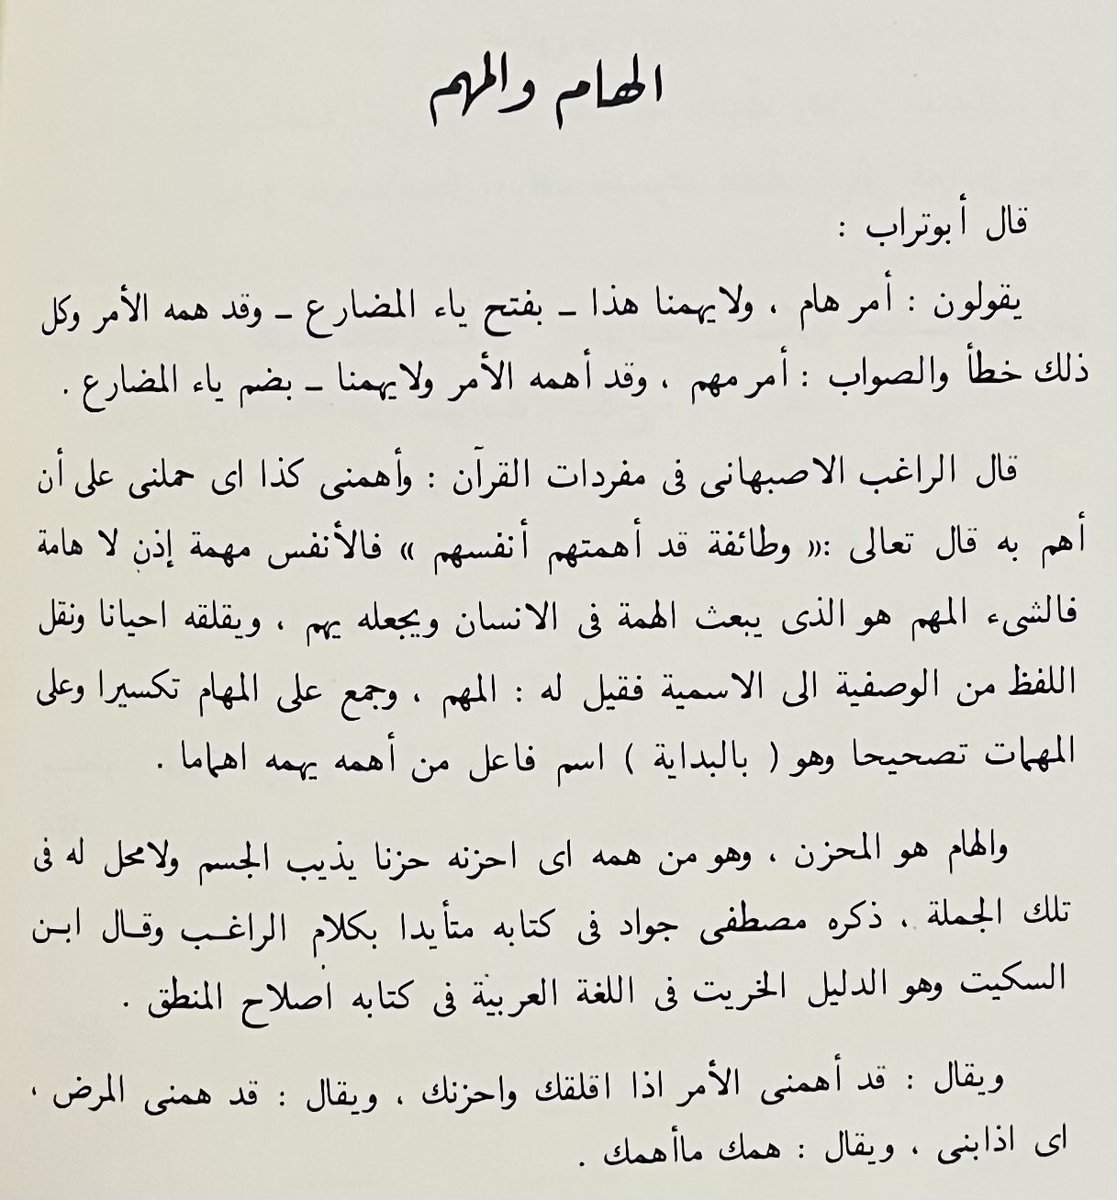 الهام والمهم
قال أبوتراب :
يقولون : أمر هام ، ولايهمنا هذا ــ بفتح ياء المضارع ــ وقد همه الأمر وكل
ذلك خطأ والصواب : أمر مهم ، وقد أهمه الأمر ولايهمنا ــ بضم ياء المضارع .
قال الراغب الاصبهانى فى مفردات القرآن : وأهمنى كذا اى حملنى على أن
أهم به قال تعالى :« وطائفة قد أهمتهم أنفسهم » فالأنفس مهمة إذن لا هامة
فالشىء المهم هو الذى يبعث الهمة فى الانسان ويجعله يهم ، ويقلقه احيانا ونقل
اللفظ من الوصفية الى الاسمية فقيل له : المهم ، وجمع على المهام تكسيرا وعلى
المهمات تصحيحا وهو ( بالبداية ) اسم فاعل من أهمه يهمه اهماما .
والهام هو المحزن ، وهو من همه اى احزنه حزنا يذيب الجسم ولامحل له فى
تلك الجملة ، ذكره مصطفى جواد فى كتابه متأيدا بكلام الراغب وقال ابن
السكيت وهو الدليل الخريت فى اللغة العربية فى كتابه اصلاح المنطق .
ويقال : قد أهمنى الأمر اذا اقلقك واحزنك ، ويقال : قد همنى المرض ،
اى اذابنى ، ويقال : همك ماأهمك .